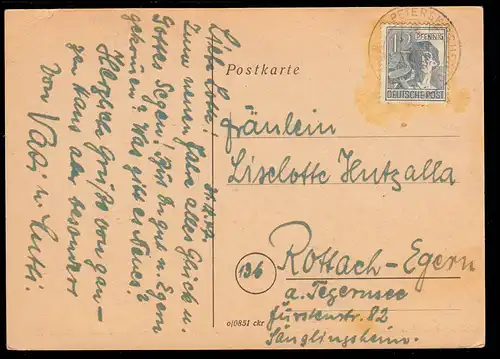 31.12.47.
Liebe Lotte!
Zum neuen Jahre alles Glück u.
Gottes Segen! Bist Du gut n. Egern
gekommen? Was gibt es Neues?
Herzliche Grüße vom gan-
zen Haus aber besonders
von Vati u. Mutti.
Postkarte
PETERSKIRCHEN
12 PFENNIG
DEUTSCHE POST
Fräulein
Liselotte Hutzalla
(13b)
Rottach-Egern
a. Tegernsee
Fürstenstr. 82
Säuglingsheim.
oj0851 ckr